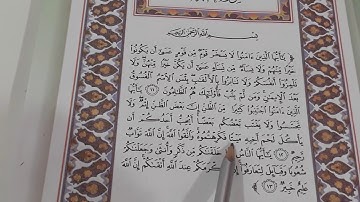 بِسْمِ اللَّهِ الرَّحْمَٰنِ الرَّحِيمِ
يَٰٓأَيُّهَا الَّذِينَ ءَامَنُوا لَا يَسْخَرْ قَوْمٌ مِّن قَوْمٍ عَسَىٰٓ أَن يَكُونُوا
خَيْرًا مِّنْهُمْ وَلَا نِسَآءٌ مِّن نِّسَآءٍ عَسَىٰٓ أَن يَكُنَّ خَيْرًا مِّنْهُنَّ وَلَا
تَلْمِزُوٓا أَنفُسَكُمْ وَلَا تَنَابَزُوا بِالْأَلْقَٰبِ بِئْسَ الِاسْمُ الْفُسُوقُ
بَعْدَ الْإِيمَٰنِ وَمَن لَّمْ يَتُبْ فَأُولَٰٓئِكَ هُمُ الظَّٰلِمُونَ ﴿١١﴾ يَٰٓأَيُّهَا
الَّذِينَ ءَامَنُوا اجْتَنِبُوا كَثِيرًا مِّنَ الظَّنِّ إِنَّ بَعْضَ الظَّنِّ إِثْمٌ وَلَا
تَجَسَّسُوا وَلَا يَغْتَب بَّعْضُكُم بَعْضًا أَيُحِبُّ أَحَدُكُمْ أَن
يَأْكُلَ لَحْمَ أَخِيهِ مَيْتًا فَكَرِهْتُمُوهُ وَاتَّقُوا اللَّهَ إِنَّ اللَّهَ تَوَّابٌ
رَّحِيمٌ ﴿١٢﴾ يَٰٓأَيُّهَا النَّاسُ خَلَقْنَٰكُم مِّن ذَكَرٍ وَأُنثَىٰ وَجَعَلْنَٰكُمْ
شُعُوبًا وَقَبَآئِلَ لِتَعَارَفُوٓا أَكْرَمَكُمْ عِندَ اللَّهِ أَتْقَىٰكُمْ إِنَّ اللَّهَ
عَلِيمٌ خَبِيرٌ ﴿١٣﴾